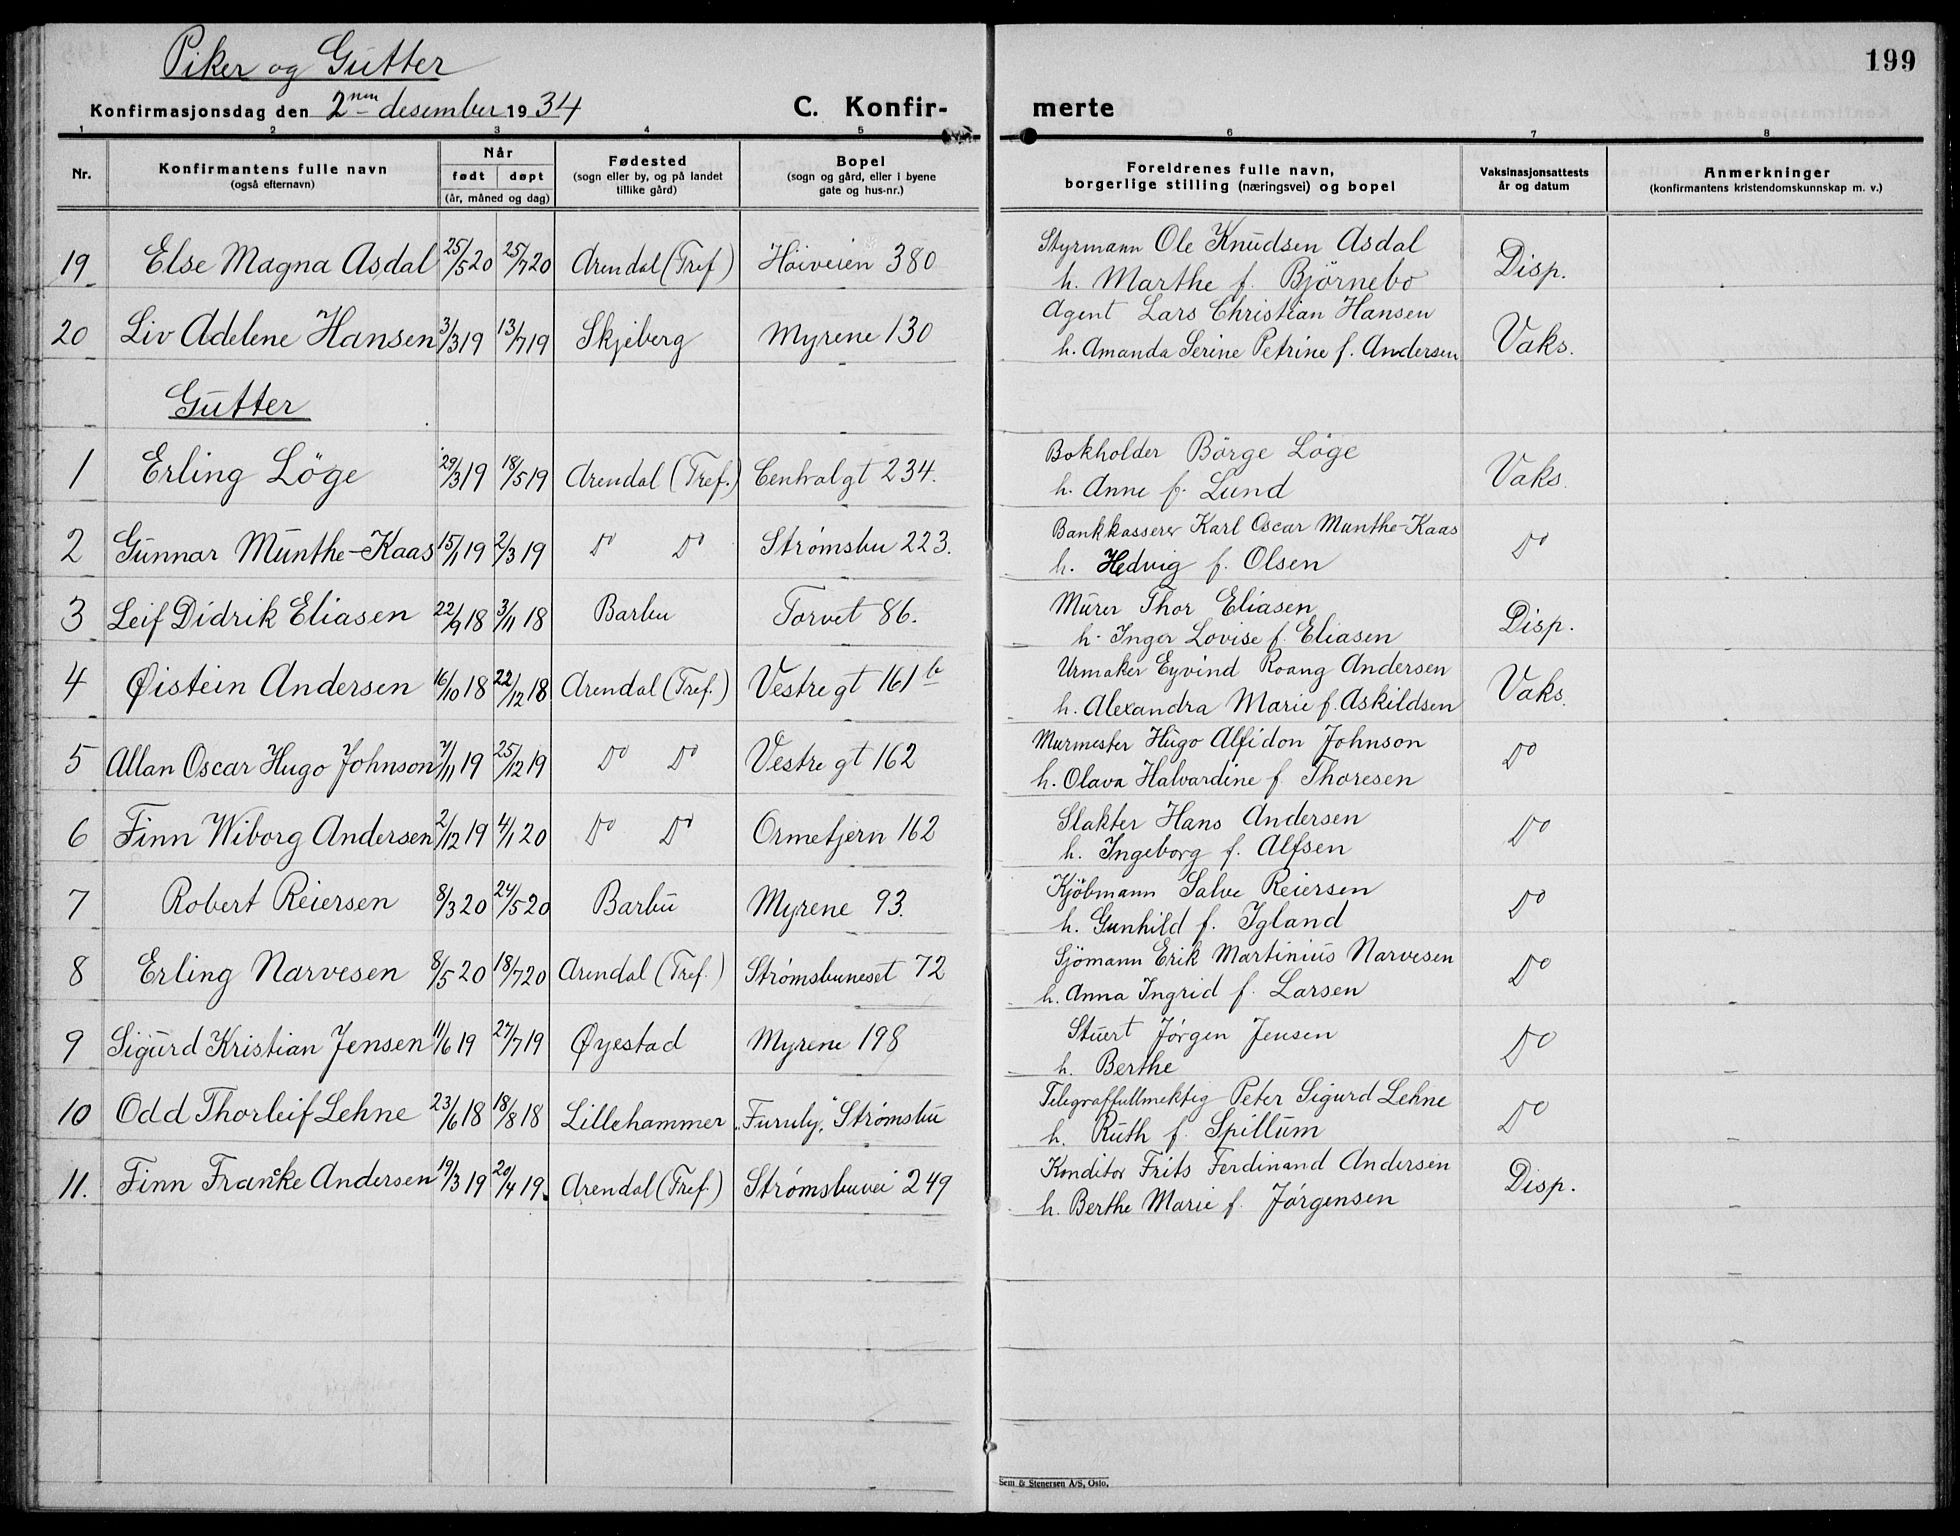 Piker og Gutter
199
Konfirmasjonsdag den 2nen desember 1934
C. Konfir-merte
1 2 3 4 5 6 7 8
Nr. Konfirmantens fulle navn (også efternavn) Når født døpt (år, måned og dag) Fødested (sogn eller by, og på landet tillike gård) Bopel (sogn og gård, eller i byene gate og hus-nr.) Foreldrenes fulle navn, borgerlige stilling (næringsvei) og bopel Vaksinasjonsattests år og datum Anmerkninger (konfirmantens kristendomskunnskap m. v.)
19 Else Magna Asdal 25/5 20 25/7 20 Arendal (Tref) Høiveien 380 Styrmann Ole Knudsen Asdal Disp.
h. Marthe f. Björnebo
20 Liv Adelene Hansen 3/3 19 13/7 19 Skjeberg Myrene 130 Agent Lars Christian Hansen Vaks.
h. Amanda Serine Petrine f. Andersen
Gutter
1 Erling Löge 29/3 19 18/5 19 Arendal (Tref.) Centralgt 234. Bokholder Börge Löge Vaks.
h. Anne f. Lund
2 Gunnar Munthe-Kaas 15/1 19 2/3 19 Do Do Strømsbu 223. Bankkasserer Karl Oscar Munthe-Kaas Do
h. Hedvig f. Olsen
3 Leif Didrik Eliasen 22/9 18 3/11 18 Barbu Torvet 86. Murer Thor Eliasen Disp.
h. Inger Lovise f. Eliasen
4 Øistein Andersen 16/10 18 22/12 18 Arendal (Tref.) Vestregt 161 b Urmaker Eyvind Roang Andersen Vaks.
h. Alexandra Marie f. Askildsen
5 Allan Oscar Hugo Johnson 7/11 19 25/12 19 Do Do Vestregt 162 Murmester Hugo Alfidon Johnson Do
h. Olava Halvardine f. Thoresen
6 Finn Wiborg Andersen 2/12 19 4/1 20 Do Do Ormetjern 162 Slakter Hans Andersen Do
h. Ingeborg f. Alfsen
7 Robert Reiersen 8/3 20 24/5 20 Barbu Myrene 93. Kjöbmann Salve Reiersen Do
h. Gunhild f. Igland
8 Erling Narvesen 8/5 20 18/7 20 Arendal (Tref.) Strømsbuneset 72 Sjömann Erik Martinius Narvesen Do
h. Anna Ingrid f. Larsen
9 Sigurd Kristian Jensen 11/6 19 27/7 19 Øyestad Myrene 198 Stuert Jørgen Jensen Do
h. Berthe
10 Odd Thorleif Lehne 23/6 18 18/8 18 Lillehammer „Furuly," Strømsbu Telegraffullmektig Peter Sigurd Lehne Do
h. Ruth f. Spillum
11. Finn Francke Andersen 19/3 19 20/4 19. Arendal (Tref.) Strømsbuvei 249 Konditor Frits Ferdinand Andersen Disp.
h. Berthe Marie f. Jørgensen
Sem & Stenersen A/S, Oslo.